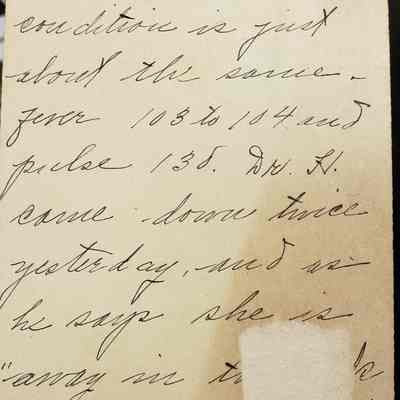 condition is just
about the same -
fever 103 to 104 and
pulse 138. Dr. H.
came down twice
yesterday, and as
he says she is
"away in